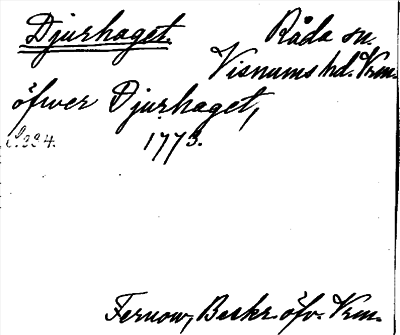 Djurhaget.
Råda sn.
Visnums hd. Vrm.
öfwer Djurhaget,
S. 224. 1773.
Fernow, Beskr. öfv. Vrm.